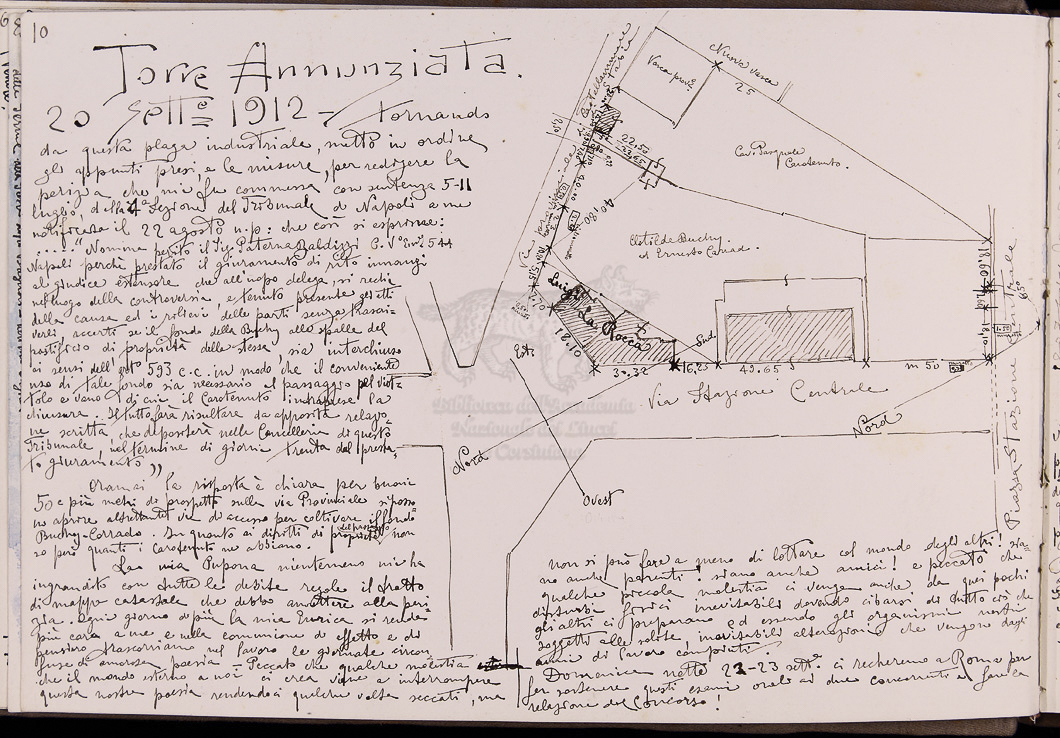 10
Torre Annunziata.
20 Sett.e 1912 - tornando
da questa plaga industriale, metto in ordine
gli appunti presi, e le misure, per redigere la
perizia che mi fu commessa con sentenza 5-11
luglio, della 4a Sezione del Tribunale di Napoli a me
notificata il 22 agosto u.p: che così si esprime:
..... "Nomina perito il Sig. Paternò Baldizzi C. V° Em° 544
Napoli perchè prestato il giuramento di rito innanzi
al giudice estensore che all'uopo delega, si rechi
nel luogo della controversia, e tenuto presente gli atti
della causa ed i rilievi delle parti senza trascri-
verli accerti se il fondo della Buchy alle spalle del
pastificio di proprietà della stessa, sia intercluso
ai sensi dell'art° 593 c.c. in modo che il conveniente
uso di tale fondo sia necessario il passaggio pel viot-
tolo e vano di cui il Carotenuto intraprese la
chiusura. Il tutto farà risultare da apposita relazio-
ne scritta, che depositerà nella Cancelleria di questo
Tribunale, nel termine di giorni trenta dal presta-
to giuramento"
Oramai la risposta è chiara per buoni
50 e più metri di prospetto sulla via Provinciale si posso
no aprire altrettante vie di accesso per coltivare il fondo
Buchy-Corrado. In quanto ai diritti di proprietà non
so però quanti i Carotenuto ne abbiano.
La mia Pupona nientemeno mi ha
ingrandito con tutte le debite regole il tratto
di mappa catastale che debbo annettere alla peri
zia. Ogni giorno di più la mia Enrica si rende
più cara a me, e nella comunione di affetto e di
pensiero trascorriamo nel lavoro le giornate circon
fuse di amorosa poesia - Peccato che qualche molestia
che il mondo esterno a noi ci crea viene a interrompere
questa nostra poesia rendendoci qualche volta seccati, ma
non si può fare a meno di lottare col mondo degli altri! sia-
no anche parenti, siano anche amici! e peccato che
qualche piccola molestia ci venga anche da quei pochi
disturbi fisici inevitabili dovendo cibarsi di tutto ciò che
gli altri ci preparano ed essendo gli organismi nostri
soggetti alle solite, inevitabili alterazioni, che vengono dagli
anni di lavoro compiuti.
Domenica notte 22-23 sett.e ci recheremo a Roma per
far sostenere questi esami orali ai due concorrenti e fare la
relazione del Concorso!
Vasca
Nuova vasca
25
Cav. Pasquale
Carotenuto.
22.50
22.60
40.80
40.00
Clotilde Buchy
Ernesto
Luigi La Rocca
18.10
30.32
16.25
Sud
49.65
m 50
18.60
18.10
65°
Est
Via Stazione Centrale
Nord
Nord
Ovest
Piazza Stazione Centrale
Biblioteca dell'Accademia
Nazionale dei Lincei
e Corsiniana